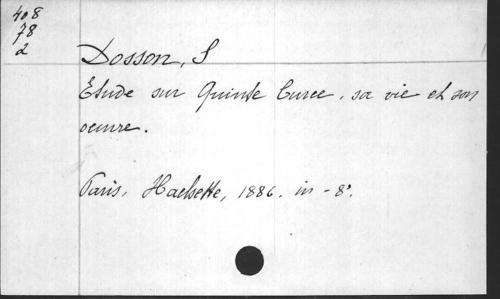 408
78
2
Dosson, S
Etude sur Quinte Curce, sa vie et son
oeuvre.
Paris, Hachette, 1886. in-8°.